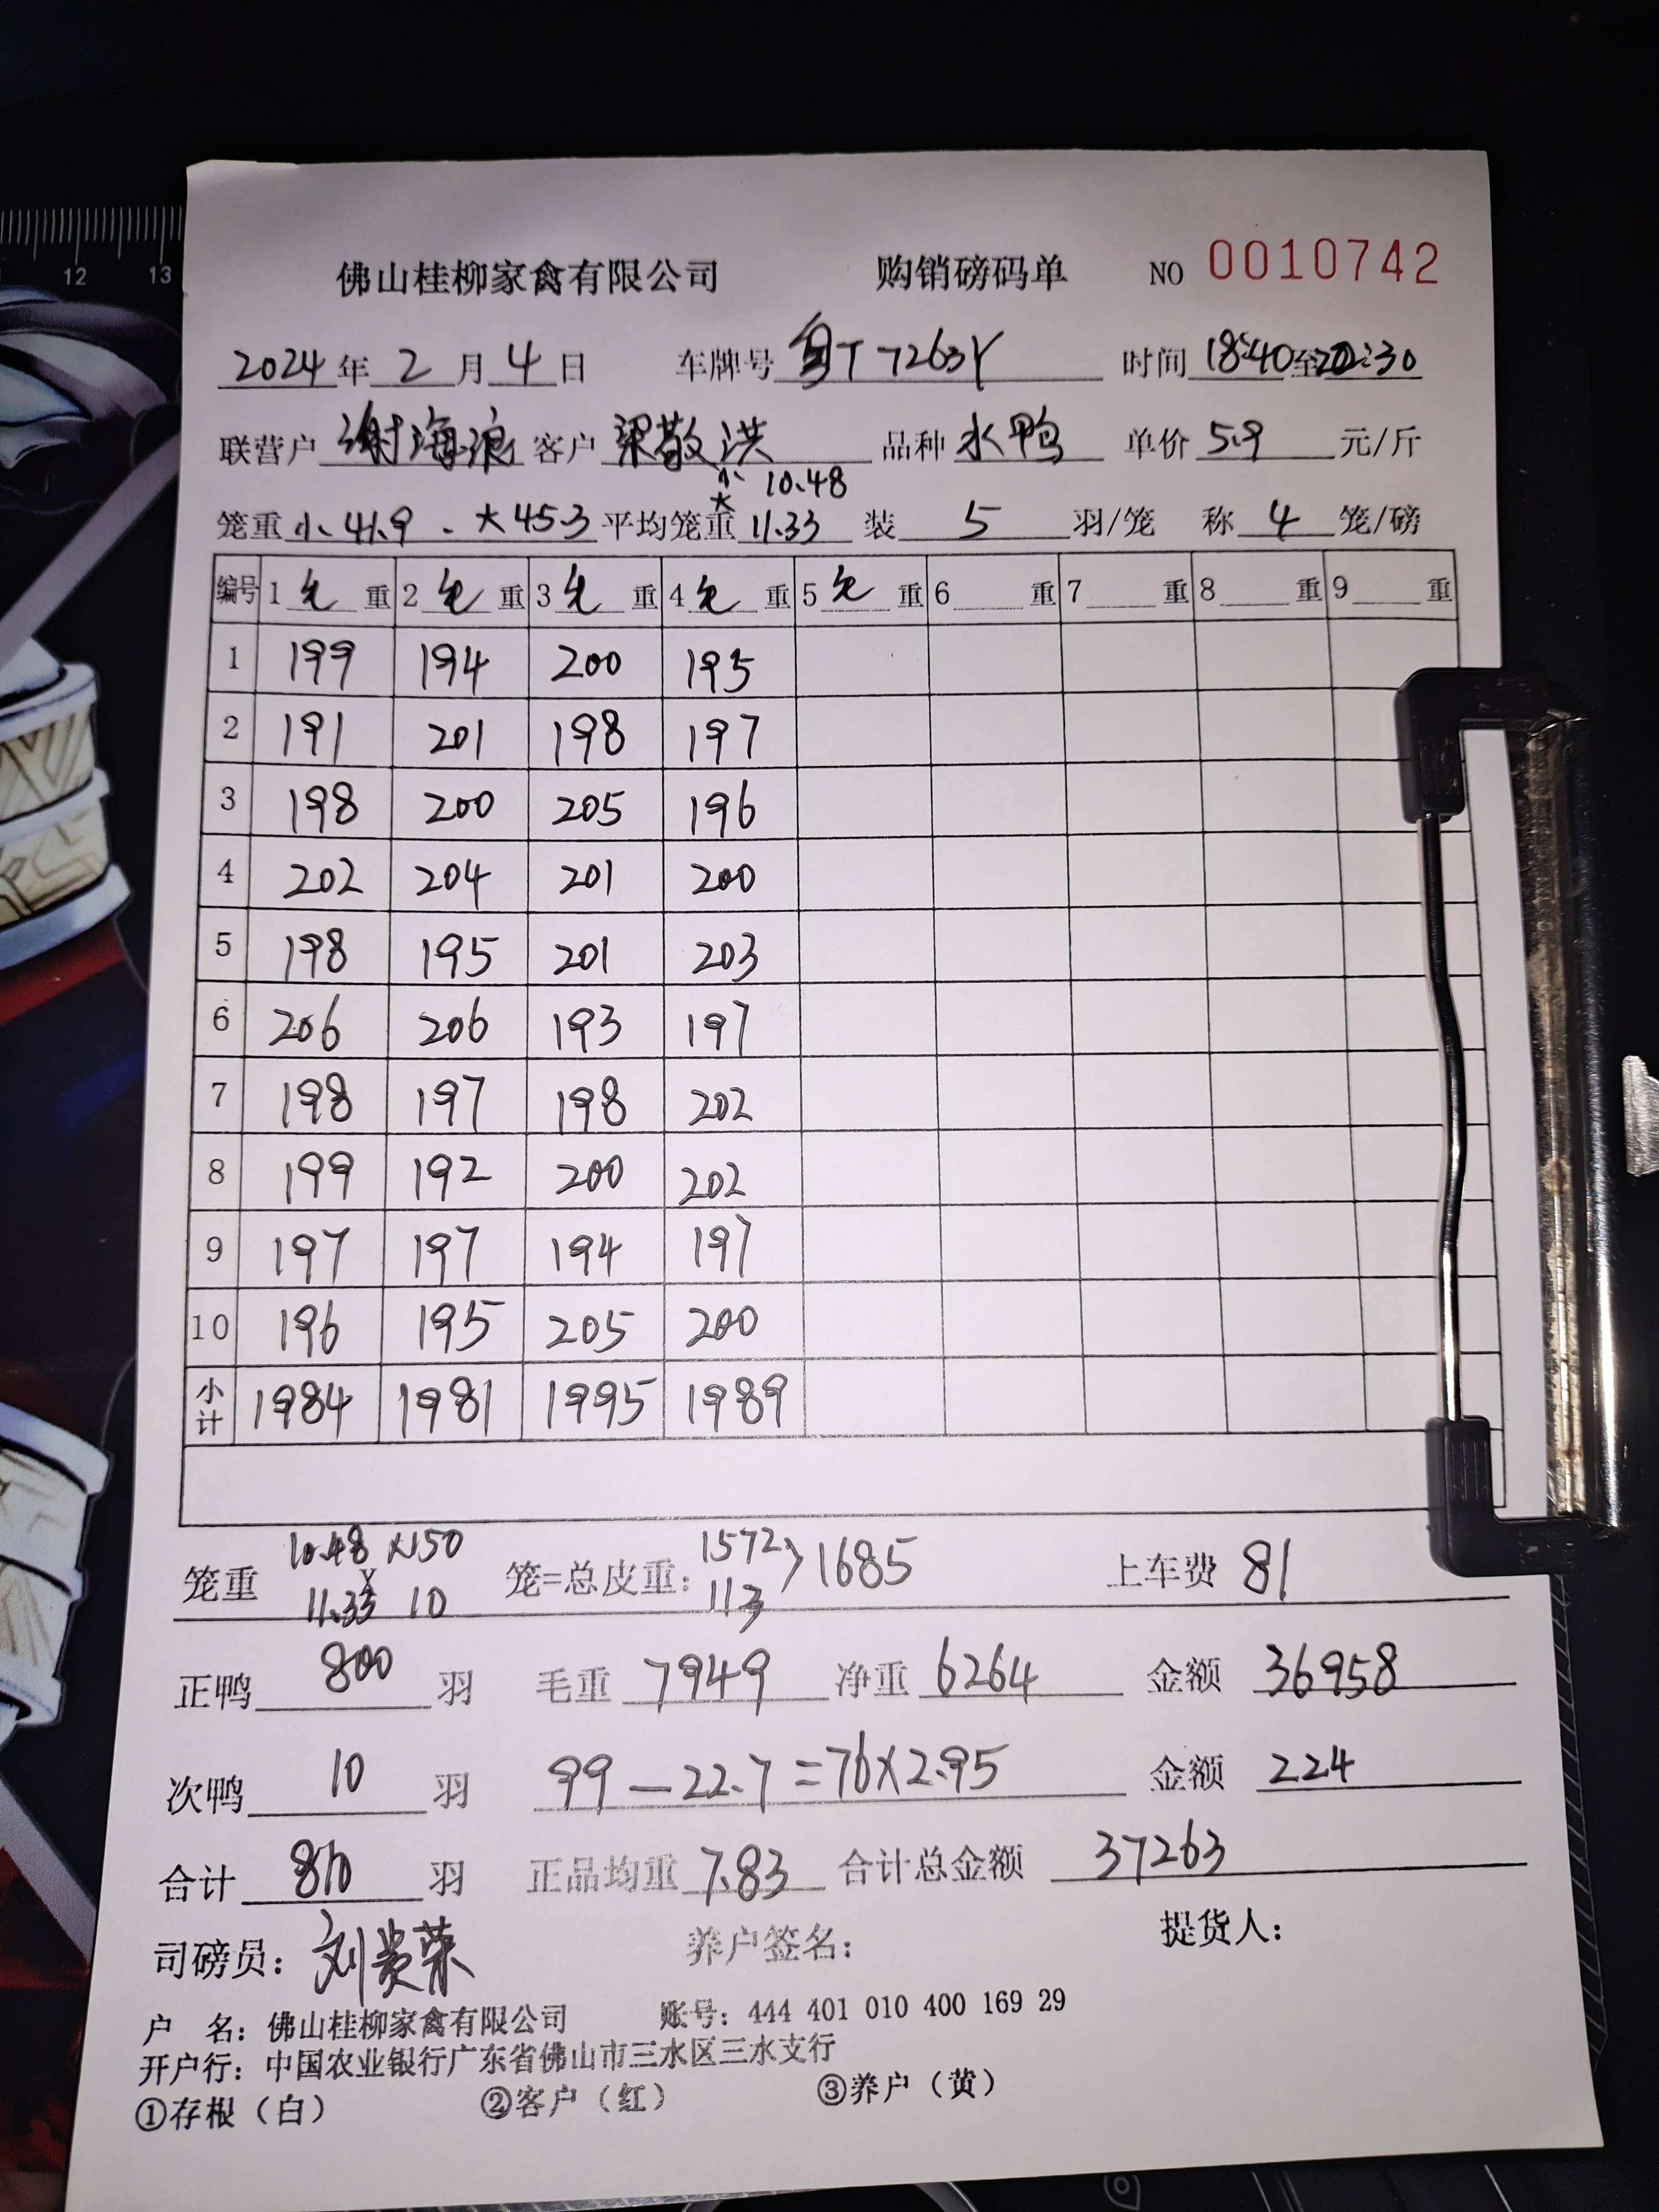 12 13
佛山桂柳家禽有限公司 购销磅码单 NO 0010742
2024年2月4日 车牌号 粤T7263Y 时间 18:40至20:30
联营户 谢海浪 客户 梁敬洪 品种 水鸭 单价 5.9 元/斤
小 10.48
笼重 小41.9 、大45.3 平均笼重 大 11.33 装 5 羽/笼 称 4 笼/磅
编号 1 毛 重 2 毛 重 3 毛 重 4 毛 重 5 毛 重 6 重 7 重 8 重 9 重
1 199 194 200 195
2 191 201 198 197
3 198 200 205 196
4 202 204 201 200
5 198 195 201 203
6 206 206 193 197
7 198 197 198 202
8 199 192 200 202
9 197 197 194 197
10 196 195 205 200
小计 1984 1981 1995 1989
笼重 10.48 x150 笼=总皮重: 1572 > 1685 上车费 81
11.33 x 10 113
正鸭 800 羽 毛重 7949 净重 6264 金额 36958
次鸭 10 羽 99—22.7=76x2.95 金额 224
合计 810 羽 正品均重 7.83 合计总金额 37263
司磅员: 刘贵荣 养户签名: 提货人:
户 名: 佛山桂柳家禽有限公司 账号: 444 401 010 400 169 29
开户行: 中国农业银行广东省佛山市三水区三水支行
①存根(白) ②客户(红) ③养户(黄)